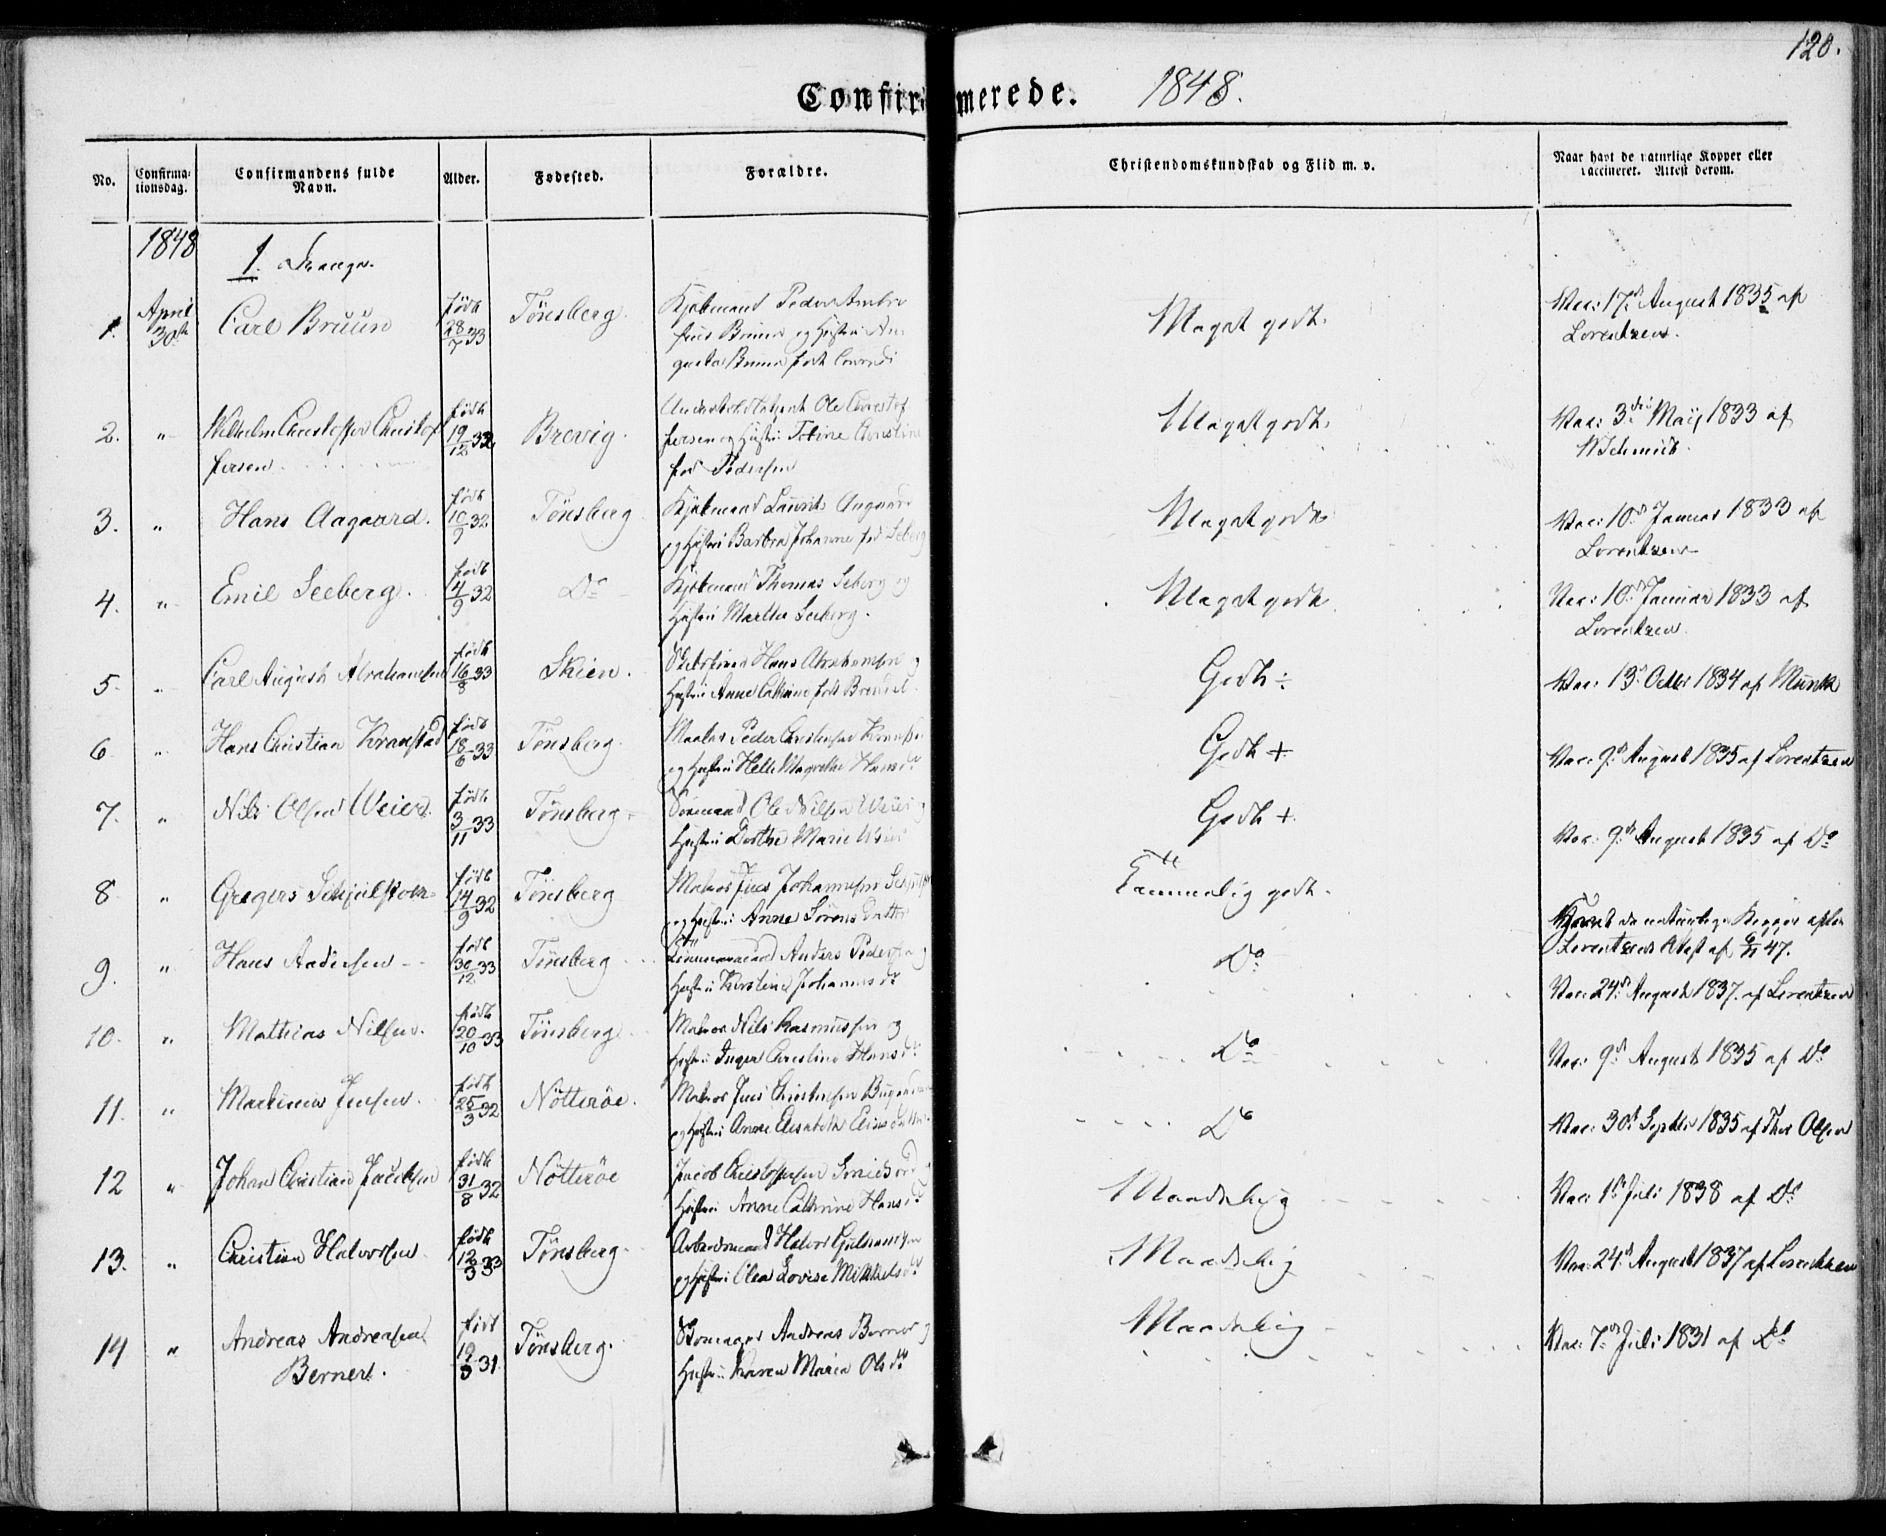 120.
Confirmerede. 1848.
No.
Confirma-
tionsdag.
Confirmandens fulde
Navn.
Alder.
Fødested.
Forældre.
Christendomskundskab og Flid m. v.
Naar havt de naturlige Kopper eller
vaccineret. Attest derom.
1848
1. Drenge.
1. April 30te Carl Bruun født 28/7 33 Tönsberg. Kjøbmand Peder
Bruun og Hustru Au-
gusta Bruun født
Meget godt. Vac: 17de August 1835 af
Lorentzen.
2. " Wilhelm Christoffer Christof
fersen født 19/12 32 Brevig. Ole Christof
fersen og Hustru Christine
fød Pedersen
Meget godt. Vac: 3die Maij 1833 af
Schmidt.
3. " Hans Aagaard. født 10/9 32 Tönsberg Kjøbmand Laurits Aagaard
og Hustru Barbra Johanne fød Seberg
Meget godt Vac: 10de Januar 1833 af
Lorentzen
4. " Emil Seeberg. født 4/9 32 Do Kjøbmand Thomas Seberg og
Hustru Marthe Seeberg.
Meget godt Vac: 10de Januar 1833 af
Lorentzen.
5. " Carl August Abrahamsen født 16/8 33 Skien. Hans Abrahamsen og
Hustru Anne Cathrine født
Godt ÷ Vac: 13de Octbr 1834 af Munk
6. " Hans Christian Kranstad født 18/6 33 Tönsberg. Maaler Peder Christensen
og Hustru Helle Margrethe Hansdr
Godt + Vac: 9de August 1835 af Lorentzen
7. " Nils Olsen Weier. født 3/11 33 Tönsberg Sömand Ole Nilsen Weier og
Hustru Dorthe Marie Weier
Godt + Vac: 9de August 1835 af Do
8 " Gregers født 14/9 32 Tönsberg Matros Jens Johannesen
og Hustru Anne Sörens Datter
Temmelig godt. Havt de naturlige Kopper efter
Lorentzens Attest af 47.
9. " Hans Andersen født 30/12 33 Tönsberg Anders Pedersen og
Hustru Kirstine Johannesdr
Do Vac: 24de August 1837. af Lorentzen
10. " Mathias Nilsen. født 20/10 33 Tönsberg Matros Nils Rasmussen og
Hustru Inger Christine Hansdr
Do Vac: 9de August 1835 af Do
11. " Martinus Jensen. født 25/3 32 Nötteröe. Matros Jens Christensen
og Hustru Anne Elisabeth
Do Vac: 30te Septbr 1835 af Thor Olsen
12 " Johan Christian Jacobsen født 31/8 32 Nötteröe Jacob Christophersen
Hustru Anne Cathrine Hansdr
Maadelig Vac: 1ste Juli 1838 af Do
13. " Christian Halvorsen. født 12/3 33 Tönsberg. Arbeidsmand Halvor
og Hustru Olea Lovise Mikkelsdr
Maadelig Vac: 24de August 1837 af Lorentzen
14 " Andreas Andreasen
Berner. født 19/3 31. Tönsberg. Skomager Andreas Berner og
Hustru Karen Maria Olsdr
Maadelig Vac: 7de Juli 1831 af Do